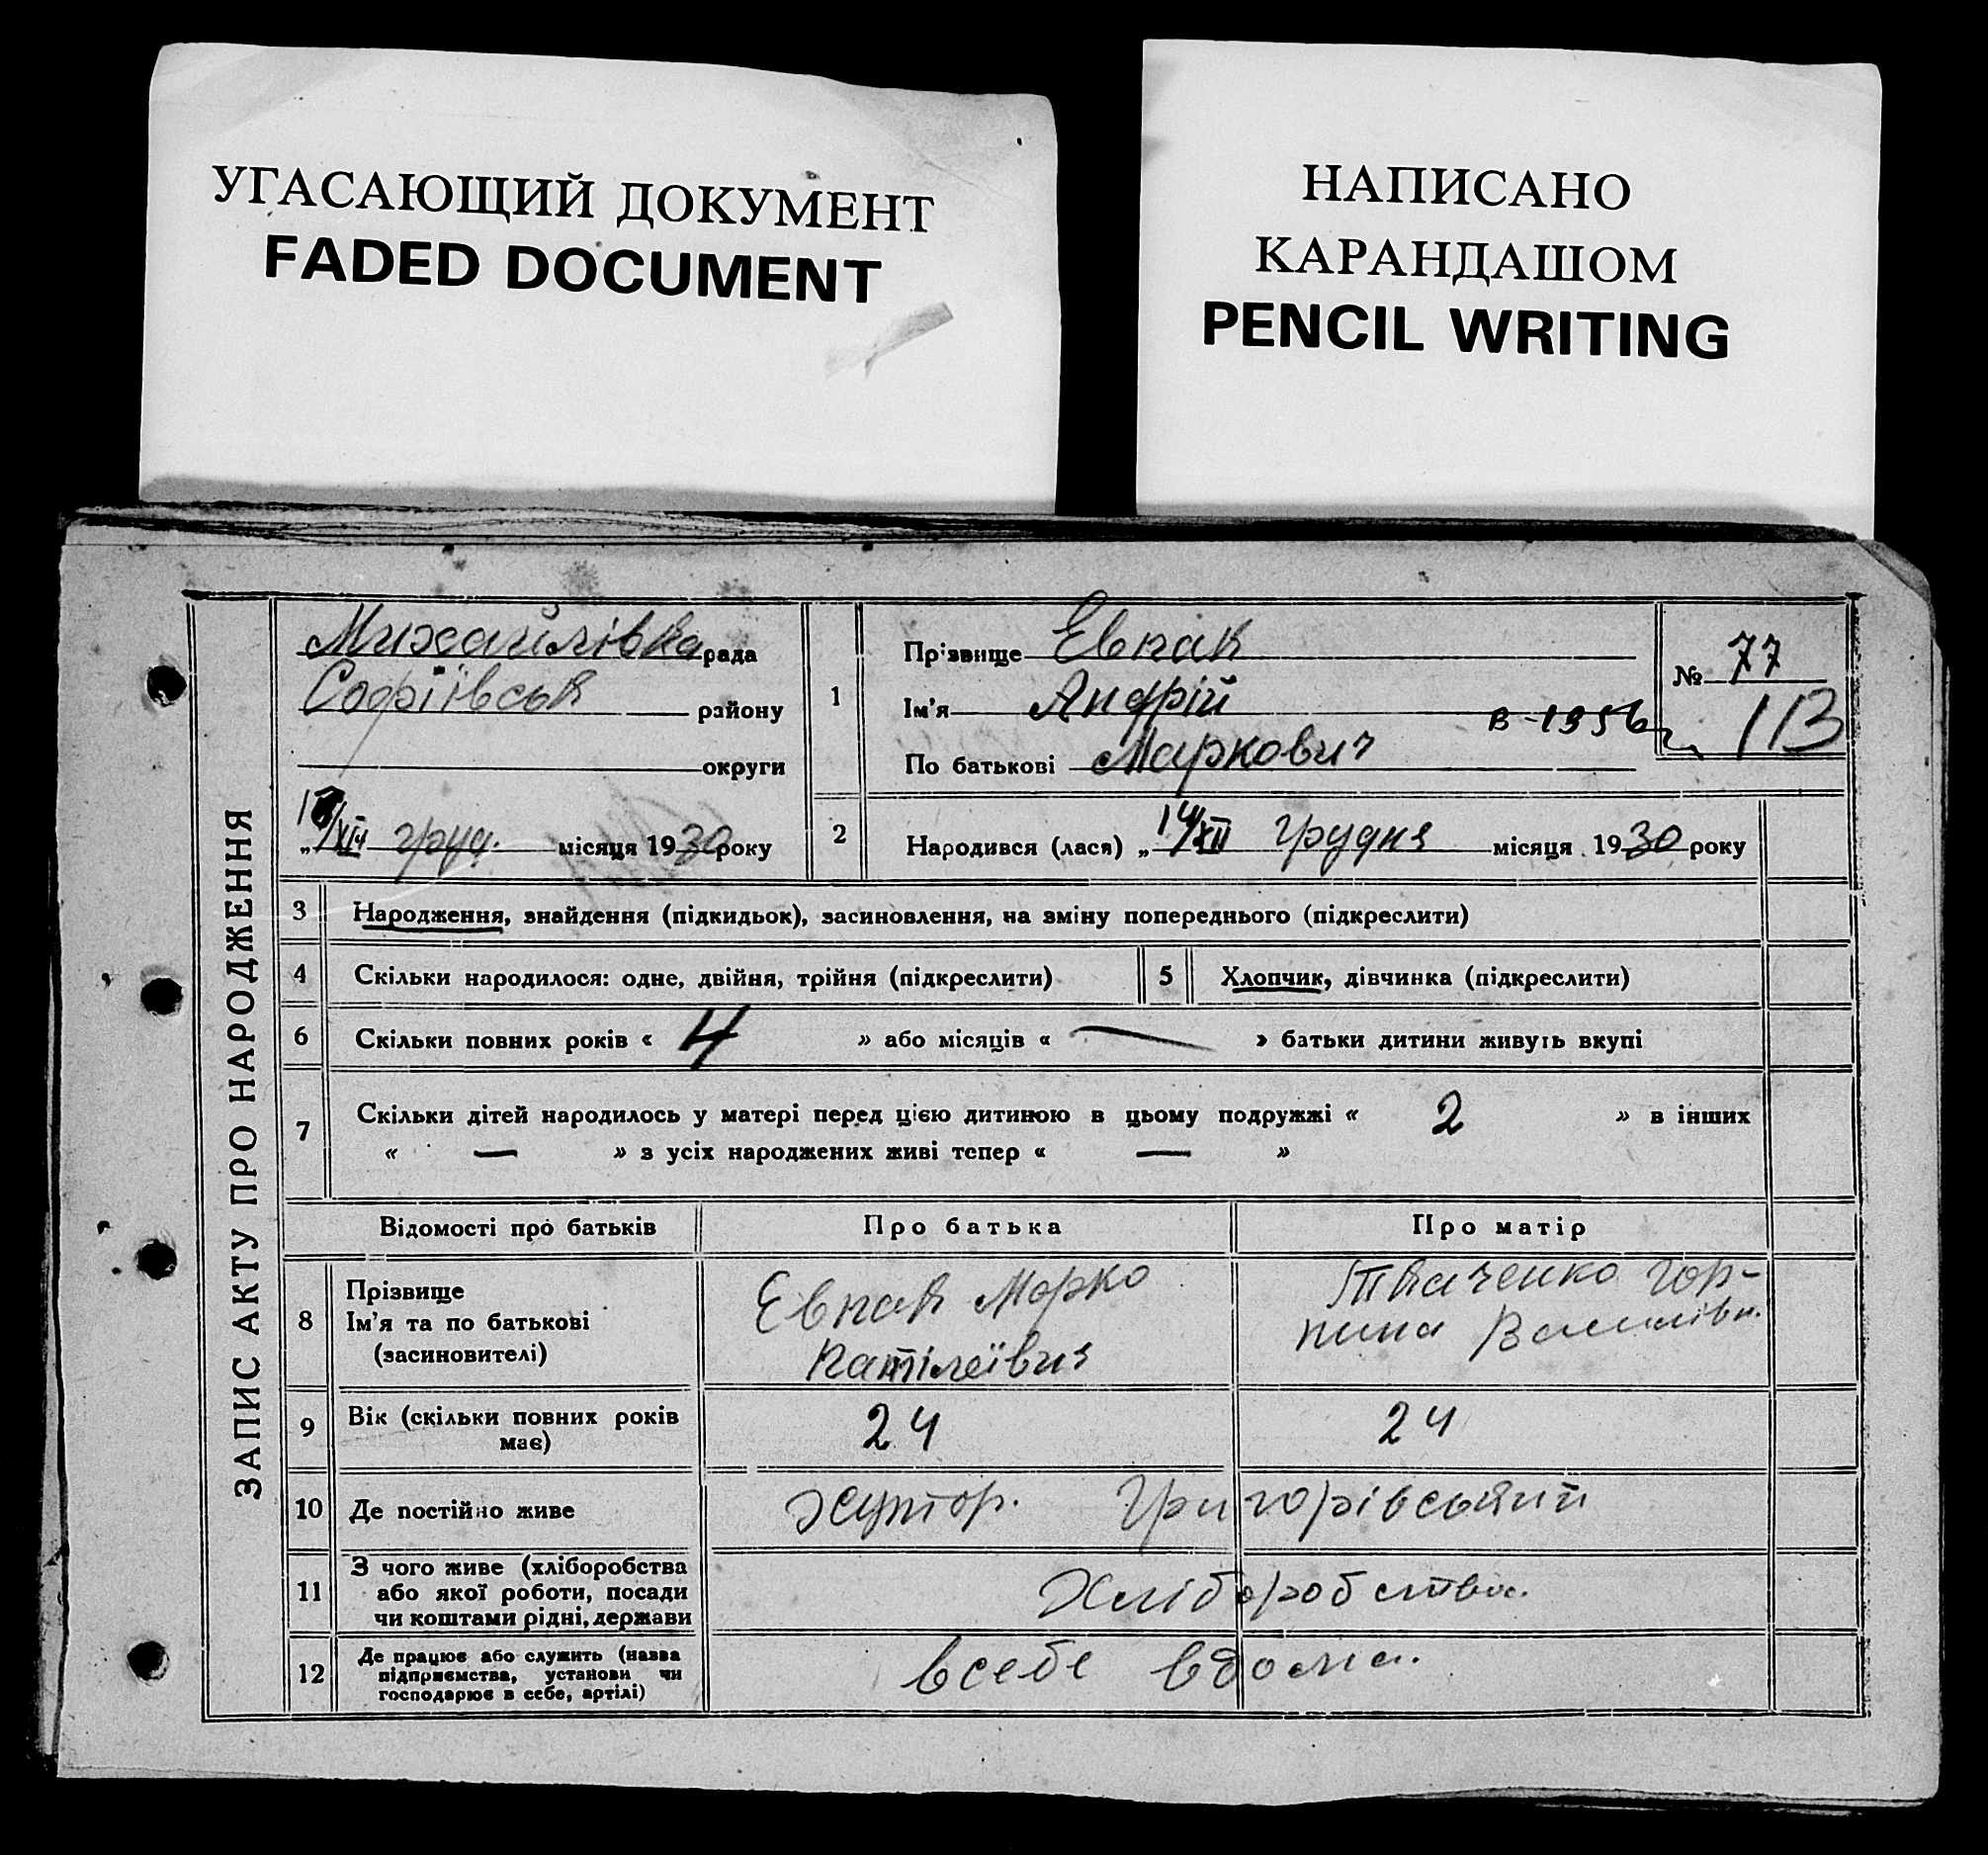 УГАСАЮЩИЙ ДОКУМЕНТ
FADED DOCUMENT
НАПИСАНО
КАРАНДАШОМ
PENCIL WRITING
ЗАПИС АКТУ ПРО НАРОДЖЕННЯ
Михайлівка рада
Софіївськ району
округи
місяця 1930 року
груд.
1
Прізвище Евпак
Ім'я Андрій
По батькові Маркович
№ 77
2 Народився (лася) „14/XII грудня місяця 1930 року
3 Народження, знайдення (підкидьок), засиновлення, на зміну попереднього (підкреслити)
4 Скільки народилося: одне, двійня, трійня (підкреслити) 5 Хлопчик, дівчинка (підкреслити)
6 Скільки повних років « 4 » або місяців « — » батьки дитини живуть вкупі
7 Скільки дітей народилось у матері перед цією дитиною в цьому подружжі « 2 » в інших
« — » з усіх народжених живі тепер « — »
Відомості про батьків Про батька Про матір
8 Прізвище
Ім'я та по батькові
(засиновителі)
Евпак Марко
Ткаченко Гор-
пина Василівн.
9 Вік (скільки повних років
має)
24 24
10 Де постійно живе хутор. Григорівський
11 З чого живе (хліборобства
або якої роботи, посади
чи коштами рідні, держави
Хліборобства.
12 Де працює або служить (назва
підприємства, установи чи
господарює в себе, артілі)
всебе вдома.